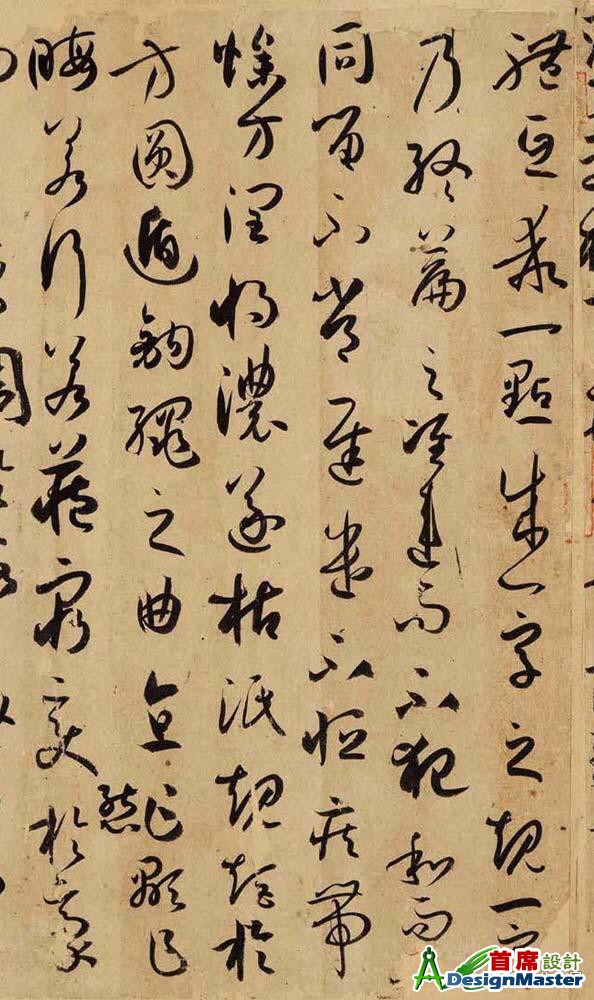 體互乖一點成一字之規一字
乃終篇之准違而不犯和而
同留不常遲遣不恒疾帶
燥方潤將濃遂枯泯規矩於
方圓遁鉤繩之曲直乍顯乍
晦若行若藏窮變態於豪
首席設計
ADesignMaster